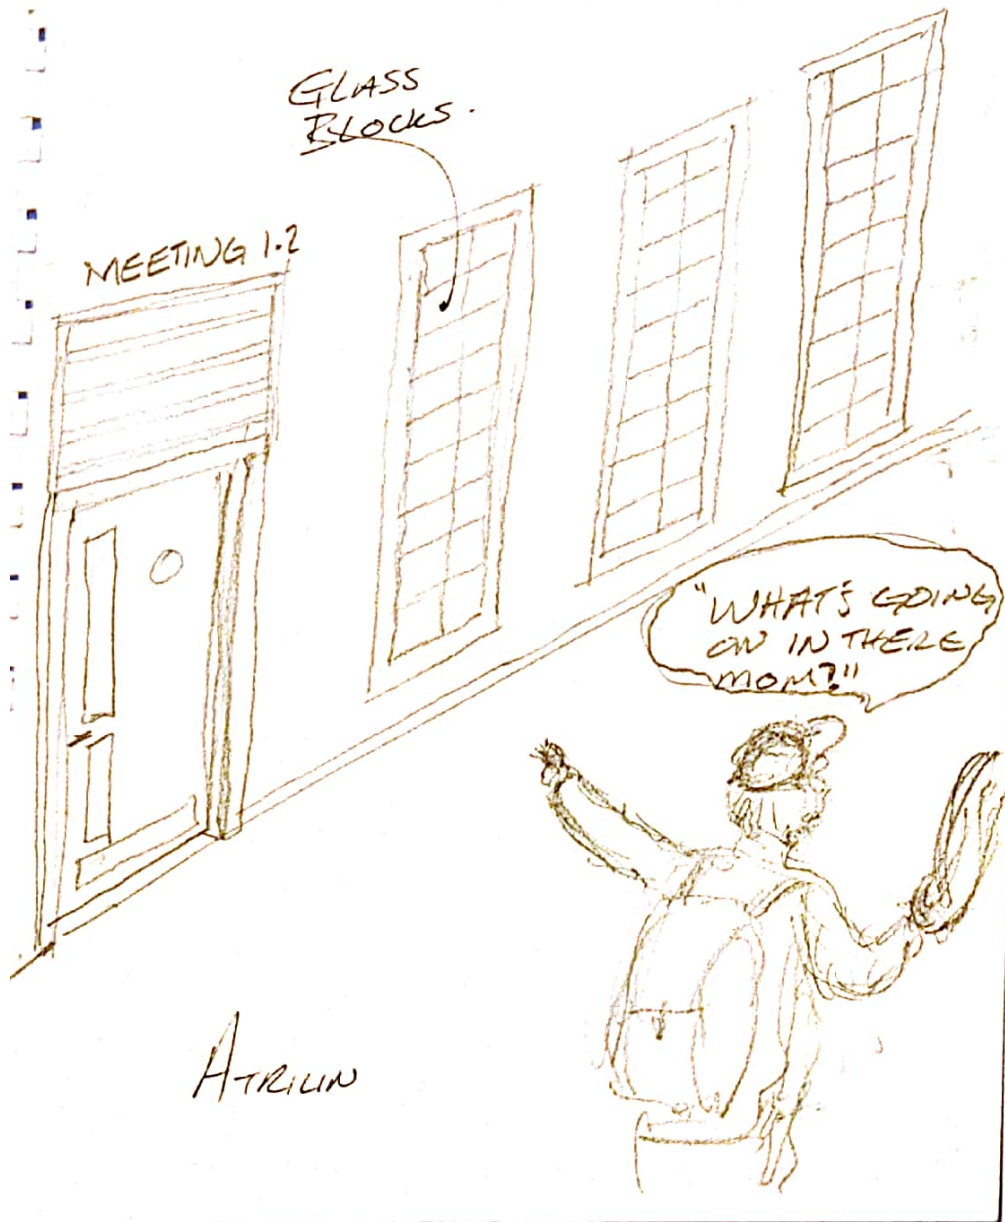 GLASS
BLOCKS.
MEETING 1.2
"WHAT'S GOING
ON IN THERE
MOM?"
ATRIUM